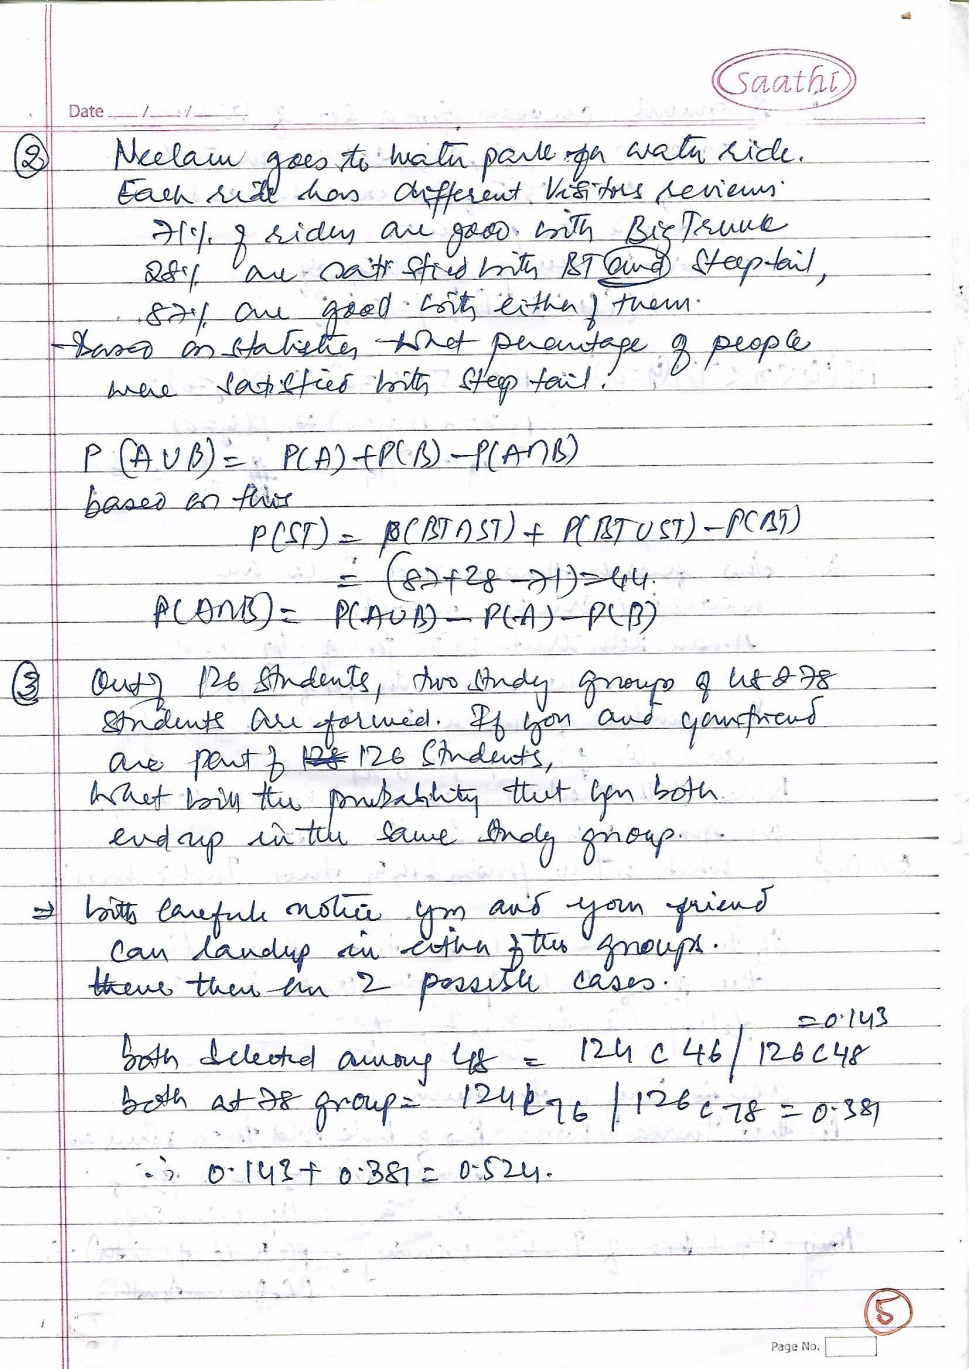 Saathi
Date ___/___/___
② Neelam goes to water park for water ride.
Each ride has different visitors reviews
71% of riders are good with Big Trunk
28% are satisfied with BT and Steeptail,
87% are good with either of them.
Based on statistics what percentage of people
were satisfied with steep tail.
P(A∪B) = P(A)+P(B)-P(A∩B)
based on this
P(ST) = P(BT∩ST) + P(BT∪ST) - P(BT)
= (87+28-71)=44.
P(A∩B) = P(A∪B) - P(A) - P(B)
③ Out of 126 Students, two study groups of 48 & 78
students are formed. If you and your friend
are part of 128 126 Students,
What will the probability that you both
end up in the same study group.
⇒ with careful notice you and your friend
can landup in either of the groups.
there there are 2 possible cases.
=0.143
both selected among 48 = 124 C 46 / 126 C 48
both at 78 group = 124 C 76 / 126 C 78 = 0.381
∴ 0.143 + 0.381 = 0.524.
5
Page No.